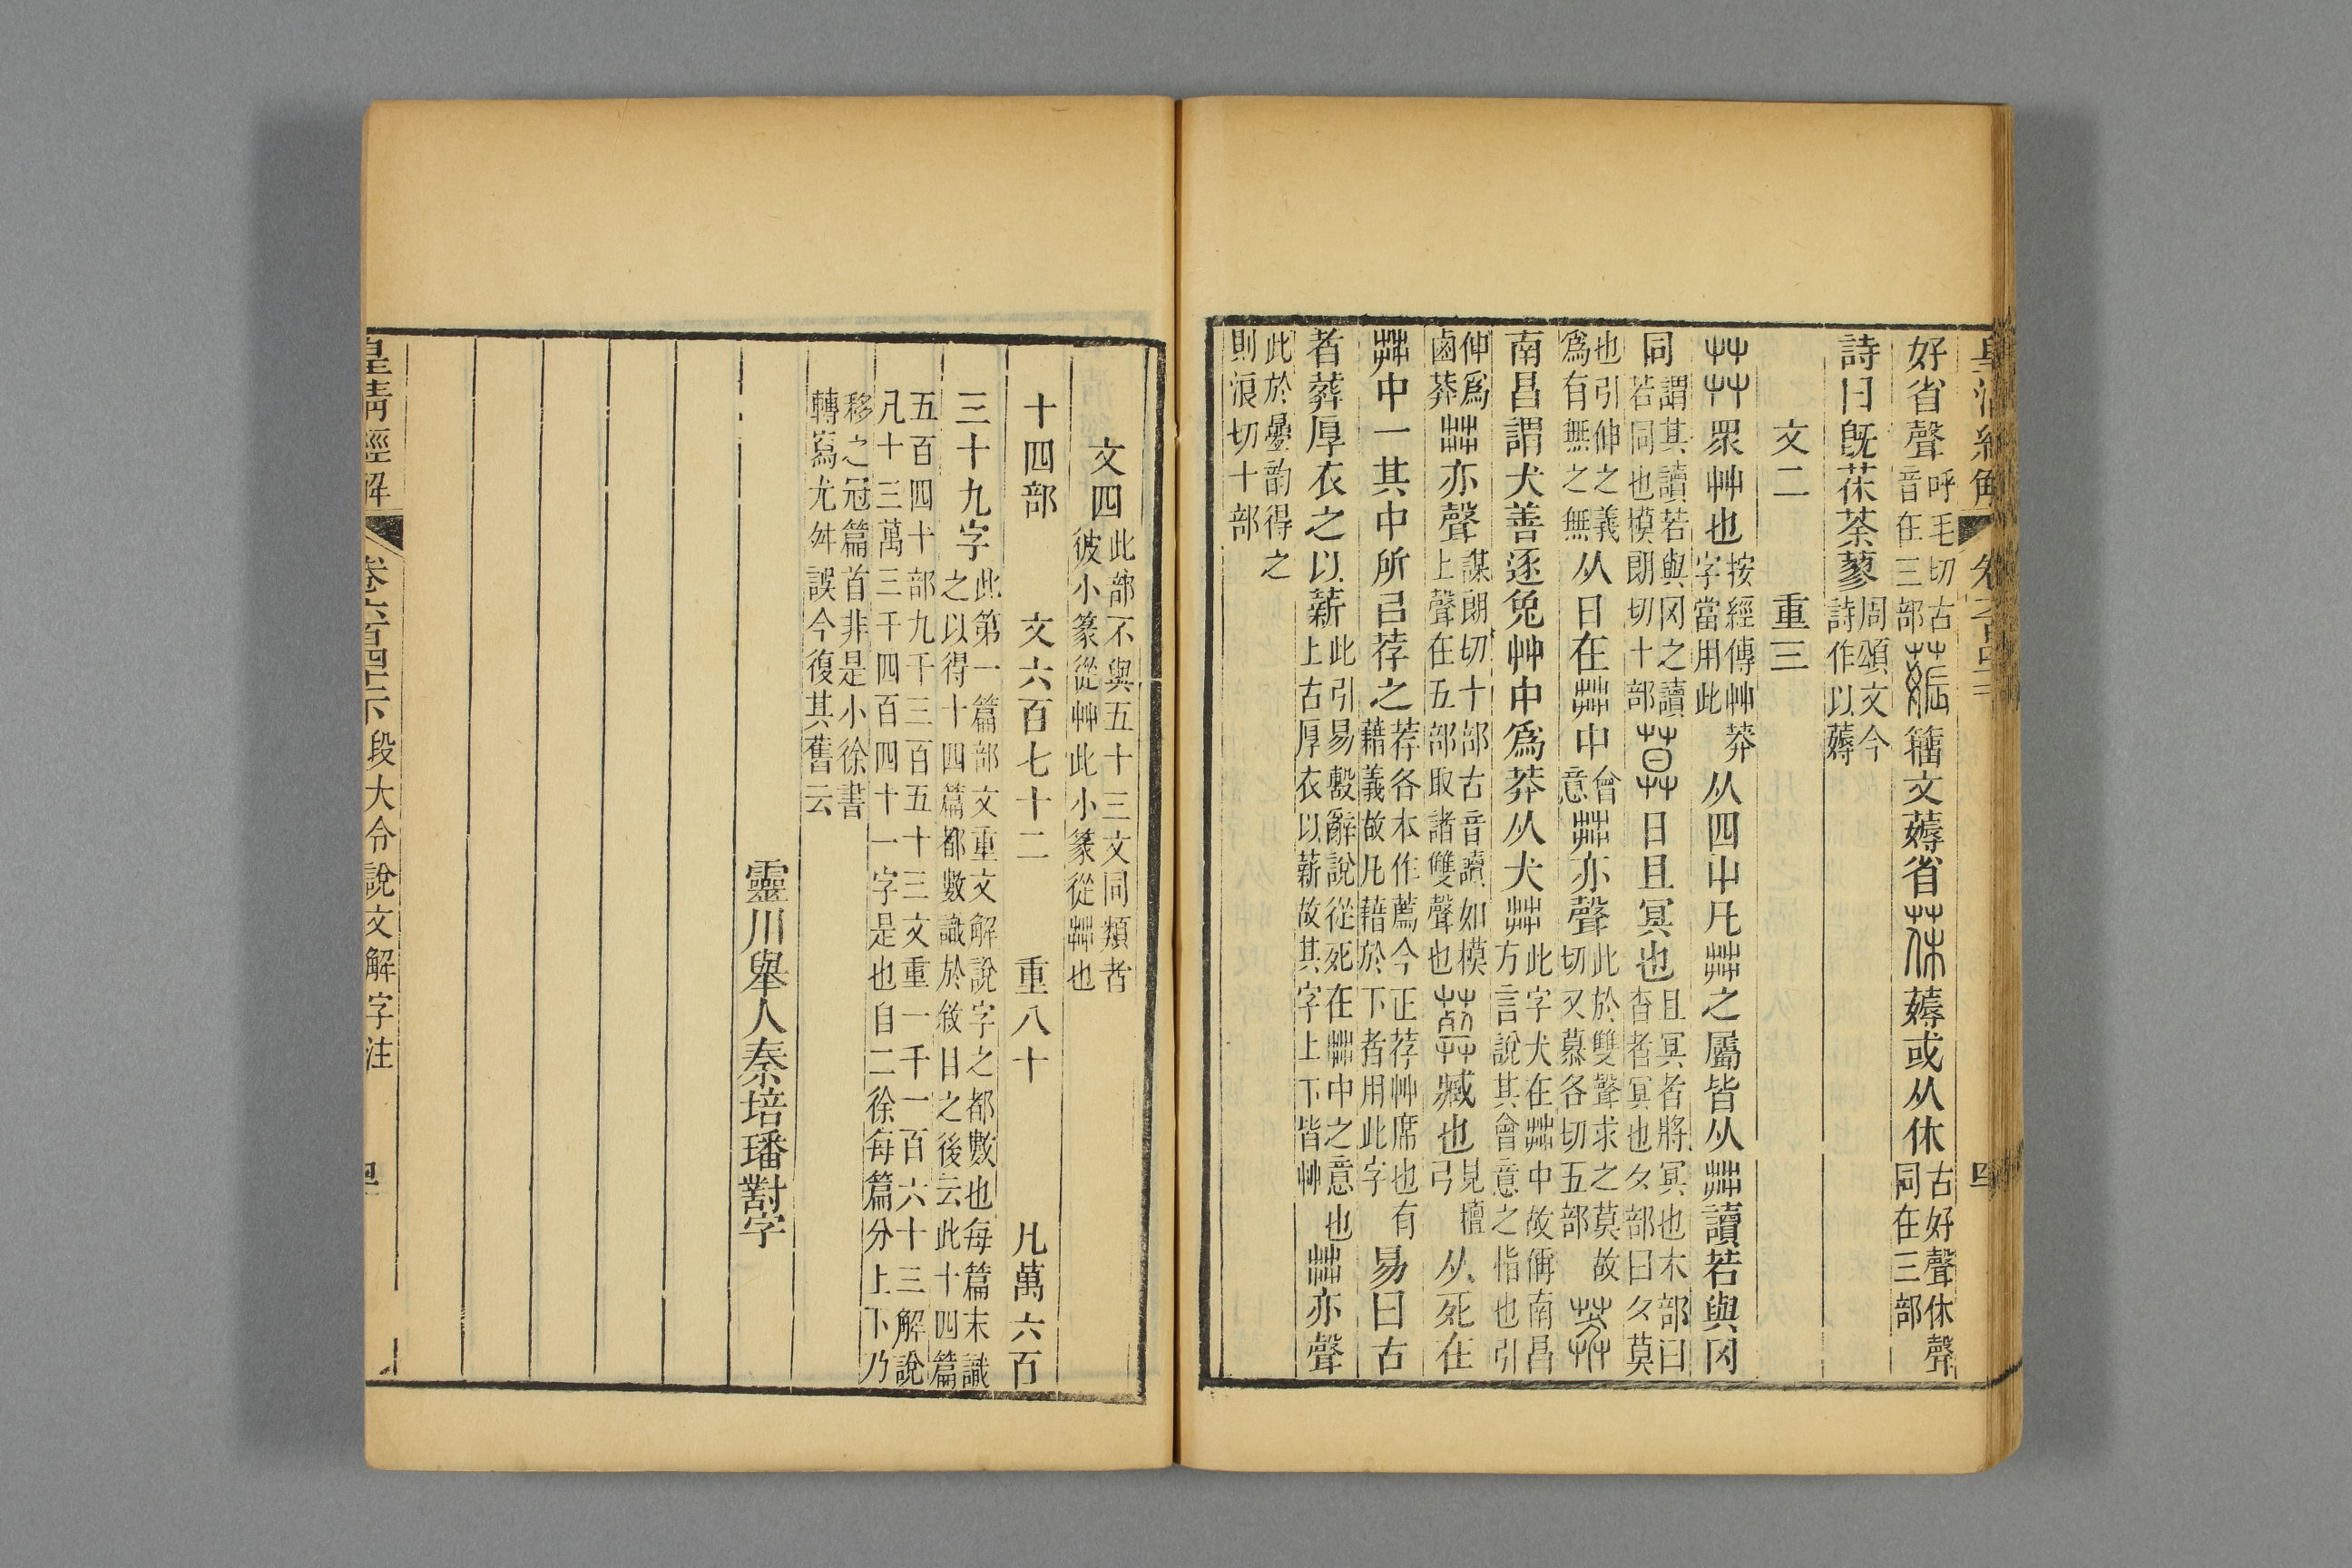 皇清經解
好省聲呼毛切古音在三部𦽡籒文薅省茠薅或从休古好聲休聲同在三部
詩曰旣茠荼蓼周頌文今詩作以薅
文二 重三
茻眾艸也按經傳艸莽字當用此从四屮凡茻之屬皆从茻讀若與冈
同謂其讀若與冈之讀若同也模朗切十部莫日且冥也且冥者將冥也木部曰杳者冥也夕部曰夕莫
也引伸之義爲有無之無从日在茻中會意茻亦聲此於雙聲求之莫故切又慕各切五部莽
南昌謂犬善逐兔艸中爲莽从犬茻此字犬在茻中故偁南昌方言說其會意之恉也引
伸爲鹵莽茻亦聲謀朗切十部古音讀如模上聲在五部取諸雙聲也葬臧也見檀弓从死在
茻中一其中所㠯荐之荐各本作薦今正荐艸席也有藉義故凡藉於下者用此字易曰古
者葬厚衣之以薪此引易毄辭說從死在茻中之意也上古厚衣以薪故其字上下皆艸茻亦聲
此於曡韵得之則浪切十部
四
文四此部不與五十三文同類者彼小篆從艸此小篆從茻也
十四部 文六百七十二 重八十 凡萬六百
三十九字此第一篇部文重文解說字之都數也每篇末識之以得十四篇都數識於敘目之後云此十四篇
五百四十部九千三百五十三文重一千一百六十三解說凡十三萬三千四百四十一字是也自二徐每篇分上下乃
移之冠篇首非是小徐書轉寫尤舛誤今復其舊云
靈川舉人秦培璠對字
皇清經解
段大令說文解字注